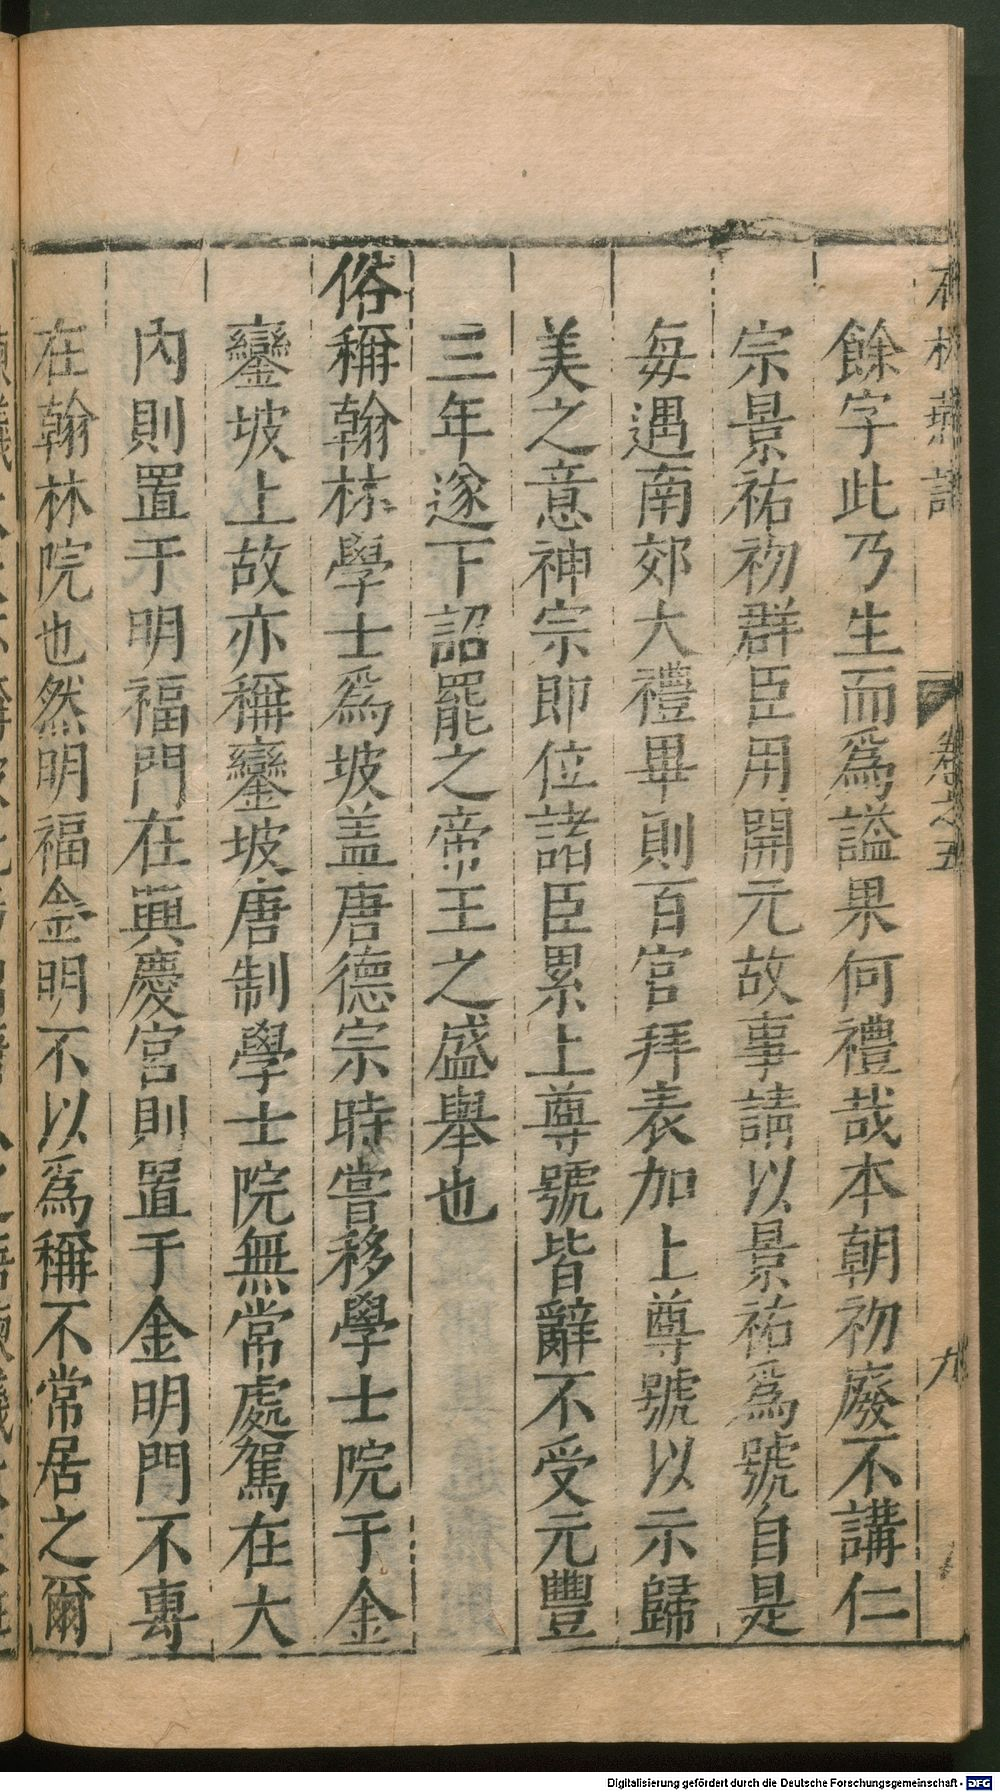 石林燕語 卷之五 九
餘字此乃生而爲謚果何禮哉本朝初廢不講仁
宗景祐初群臣用開元故事請以景祐爲號自是
每遇南郊大禮畢則百官拜表加上尊號以示歸
美之意神宗即位諸臣累上尊號皆辭不受元豐
三年遂下詔罷之帝王之盛舉也
俗稱翰林學士爲坡盖唐德宗時嘗移學士院于金
鑾坡上故亦稱鑾坡唐制學士院無常處駕在大
內則置于明福門在興慶宮則置于金明門不專
在翰林院也然明福金明不以爲稱不常居之爾
Digitalisierung gefördert durch die Deutsche Forschungsgemeinschaft - DFG